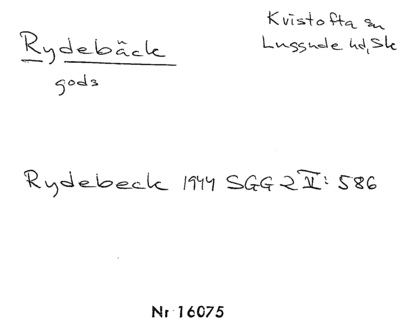 Rydebäck
gods
Kvistofta sn
Luggude hd, Sk
Rydebeck 1944 SGG 2 V: 586
Nr 16075